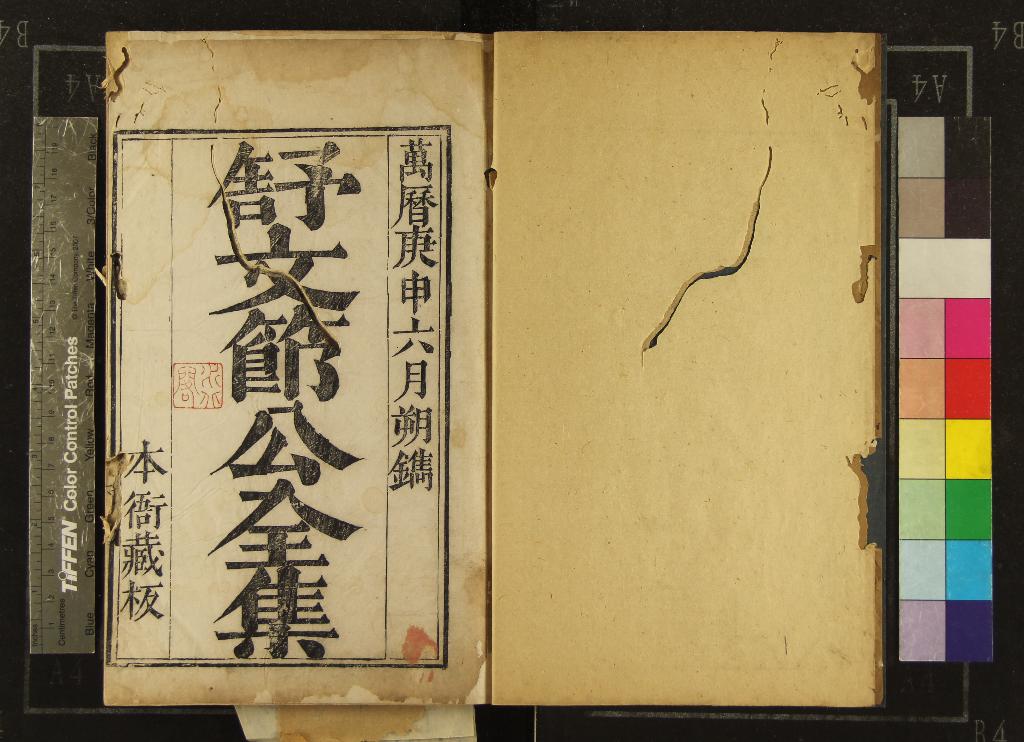 萬曆庚申六月朔鐫
舒文節公全集
本衙藏板
TIFFEN Color Control Patches
Blue Cyan Green Yellow Red Magenta White 3/Color Black
Centimetres
Inches
B4
A4
A4
B4
A4
A4
B4